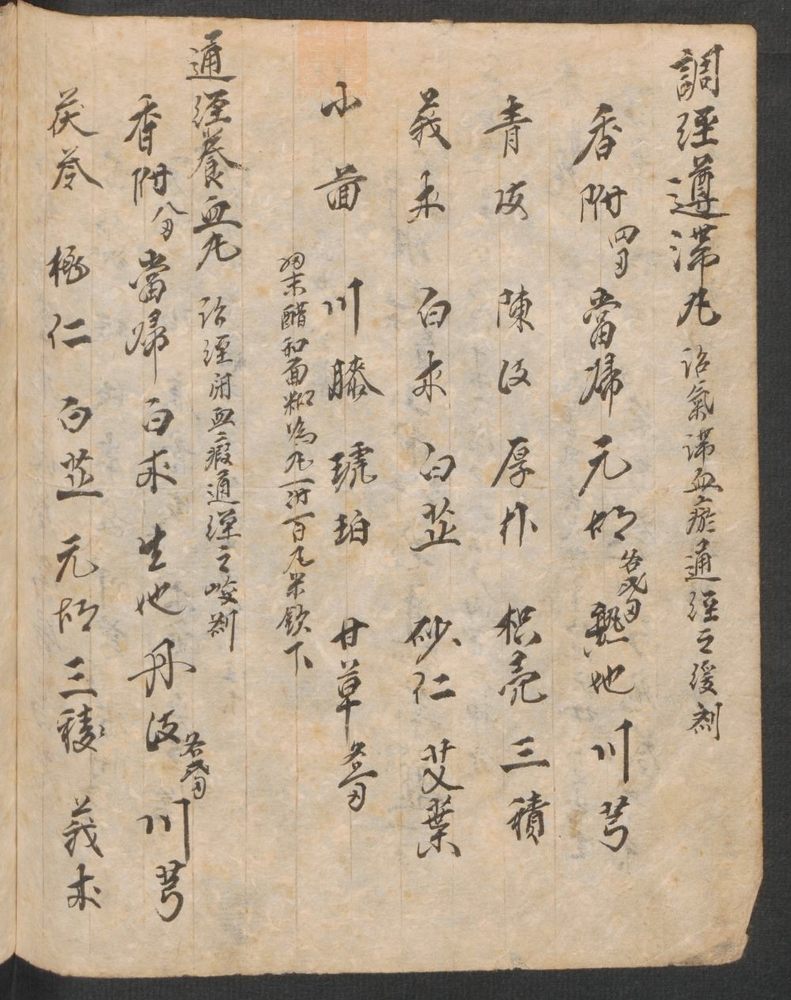 調經導滯丸 治氣滯血瘀通經之緩劑
香附 四两 當歸 元胡 各弍两 熟地 川芎
青皮 陳皮 厚朴 枳壳 三積
莪朮 白朮 白芷 砂仁 艾葉
小茴 川膝 琥珀 甘草 各一两
為末醋和面糊為丸一付一百丸米飲下
通經養血丸 治經闭血瘕通經之峻劑
香附 八两 當歸 白朮 生地 丹皮 各弍两 川芎
茯苓 桃仁 白芷 元胡 三稜 莪朮